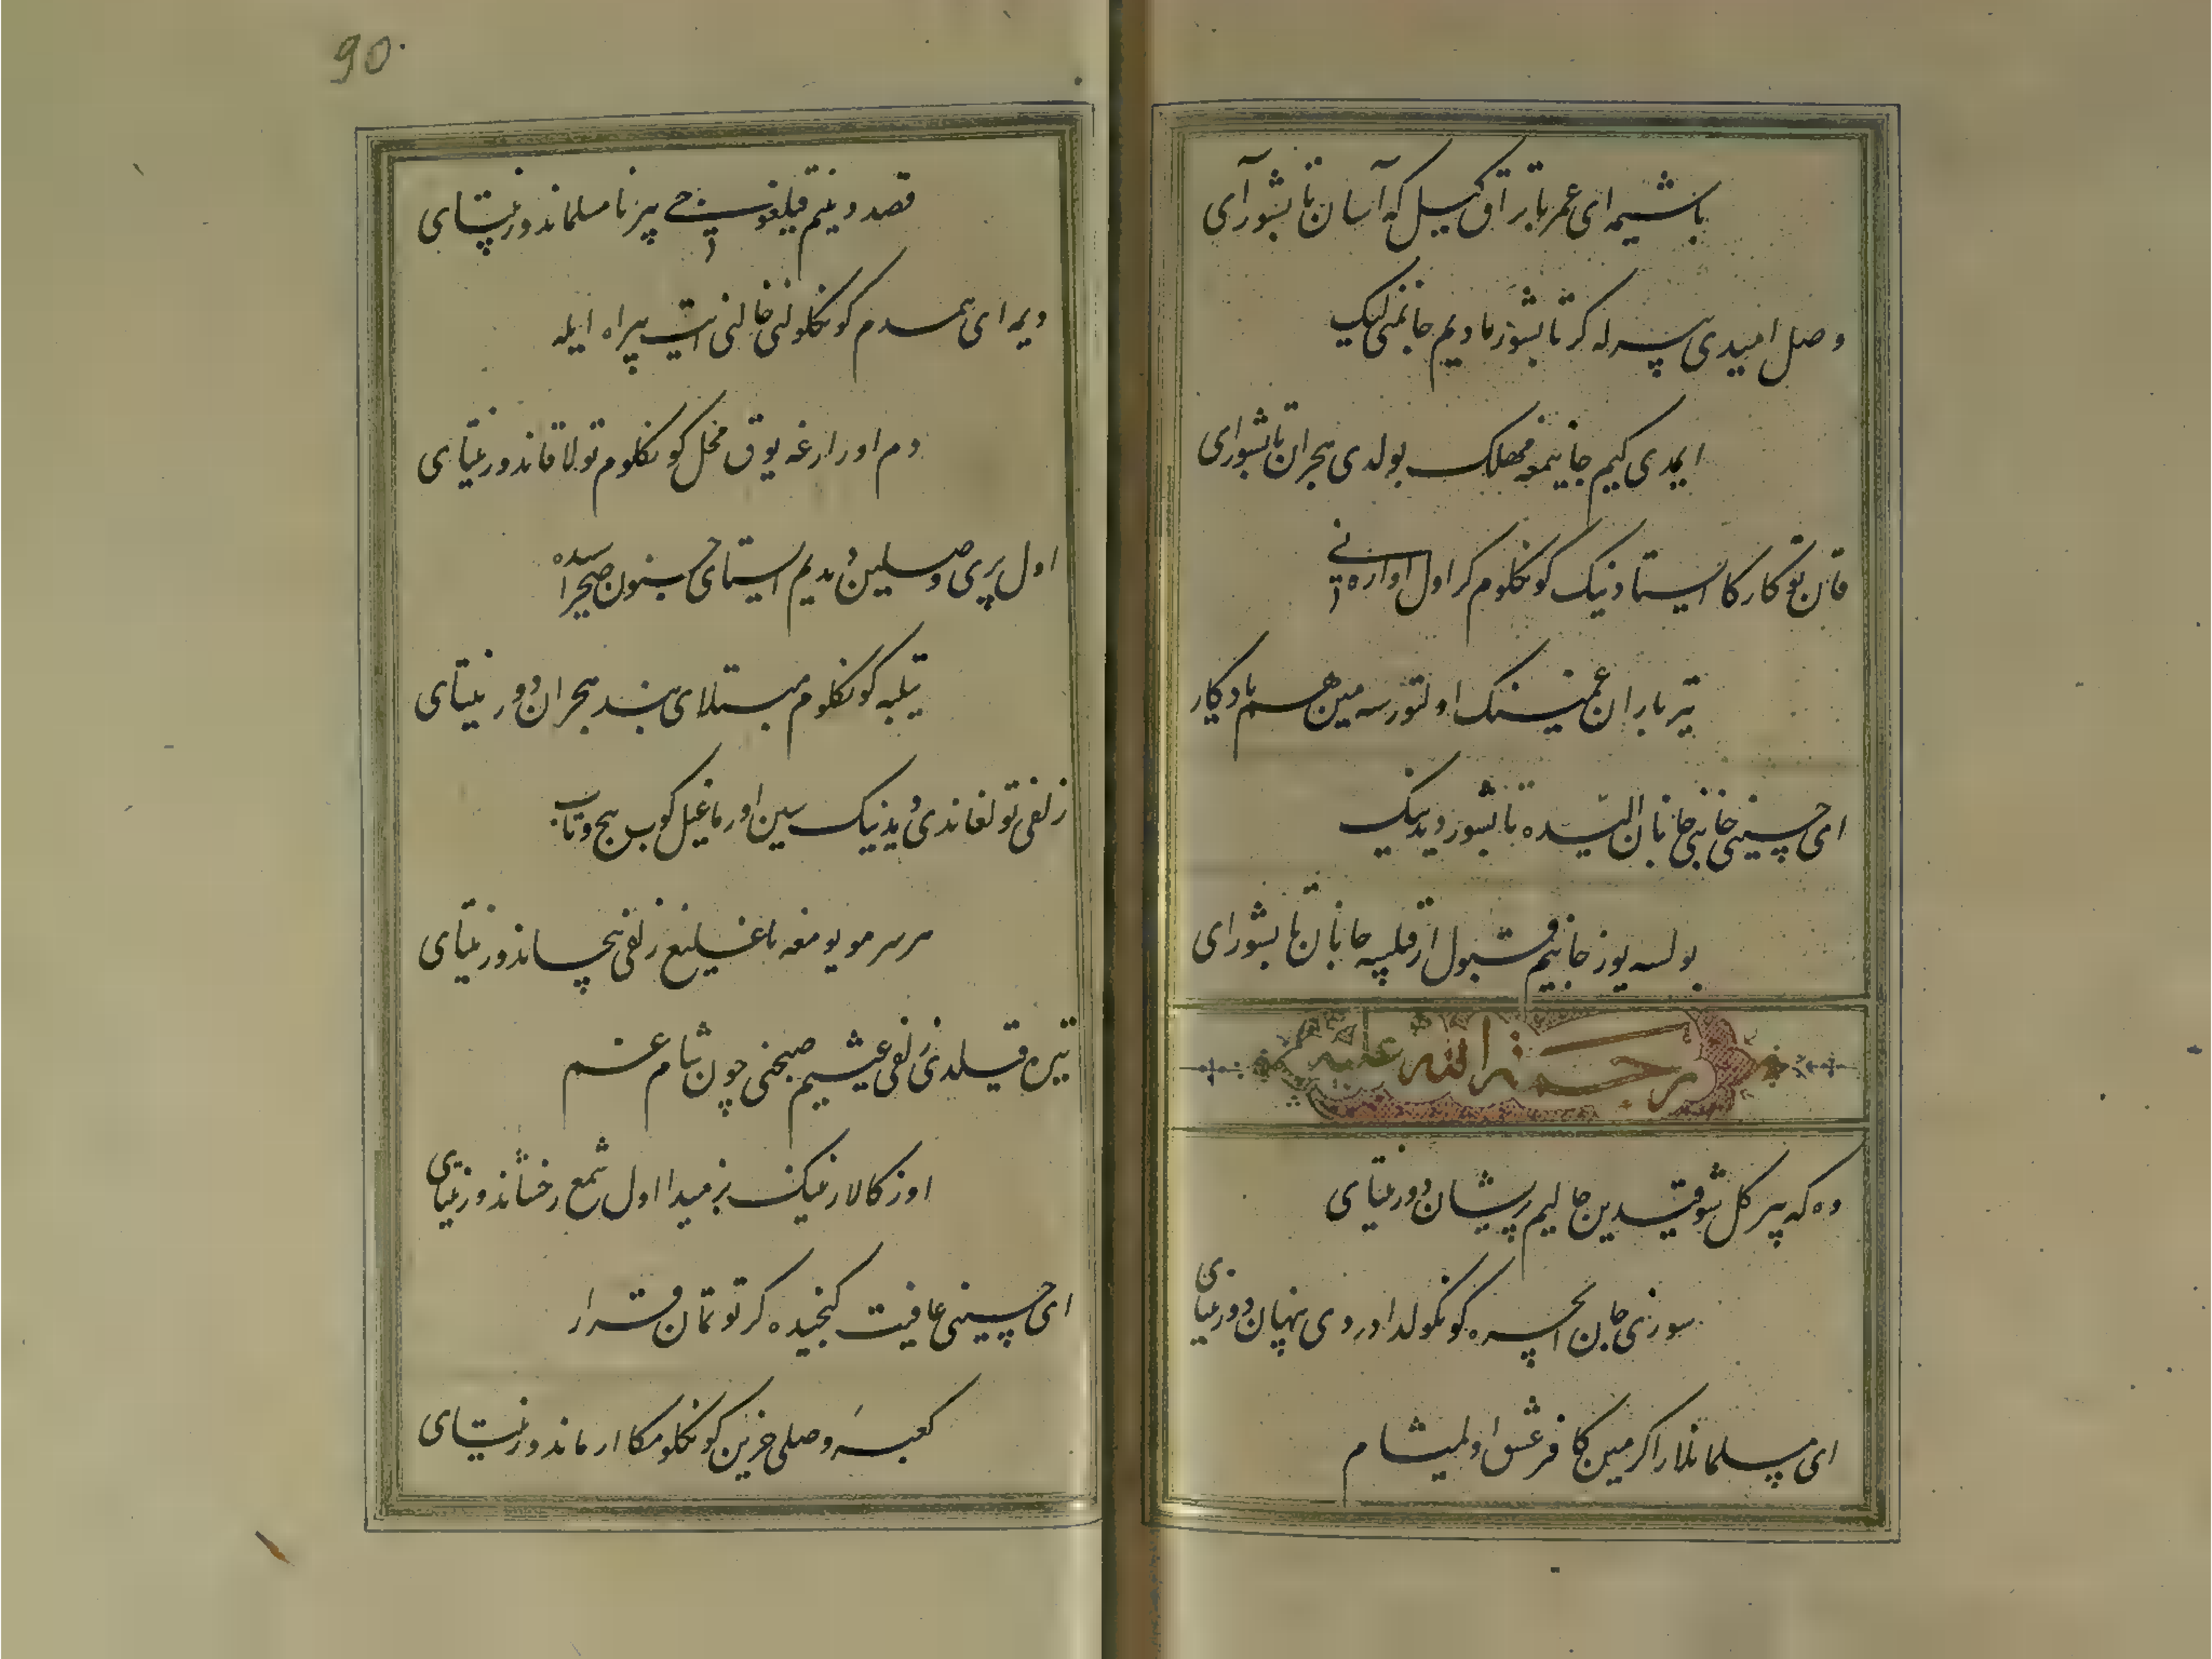 باشیمه ای عمر بات براق کیل که آسان تاپشور آی
وصل امیدی بیرله کر تاپشورمادیم جانمنی لیک
ایمدی کیم جانیمغه مهلک بولدی هجران تاپشورای
قان توکارکا ایستادنیک کونکلوم کر اول اواره نی
تیرباران غمینک اولتورسه مین هم یادیکار
ای حسینی جانی جانان الیده تاپشور دیدنیک
بولسه یوز جانیم قبول ار قیلسه جانان تاپشورای
رحمة الله علیه
وه که بیر کل شوقیدین حالیم پریشاندور نیتای
سوزی جان ایچره کونکولدا دردی پنهاندور نیتای
ای مسلمانلار اکر مین کافر عشق اولمیشام
90
قصد دینیم قیلغوچی بیر نامسلماندور نیتای
دیمه ای همدم کونکولنی خالی ایت بیراه ایله
دم اورارغه یوق محل کونکلوم تولا قاندور نیتای
اول پری وصلین دیدیم ایستای جنون صحراسیده
تیلبه کونکلوم مبتلای بند هجراندور نیتای
زلفی تولغاندی دیدنیک سین اورماغیل کوب پیچ و تاب
هر سر مویومغه باغلیغ زلفی پیچاندور نیتای
تیره قیلدی زلفی عیشیم صبحنی چون شام غم
اوزکالارنینک بزمیدا اول شمع رخشاندور نیتای
ای حسینی عافیت کنجیده کر توتمان قرار
کعبهٔ وصلی حزین کونکلومکا ارماندور نیتای